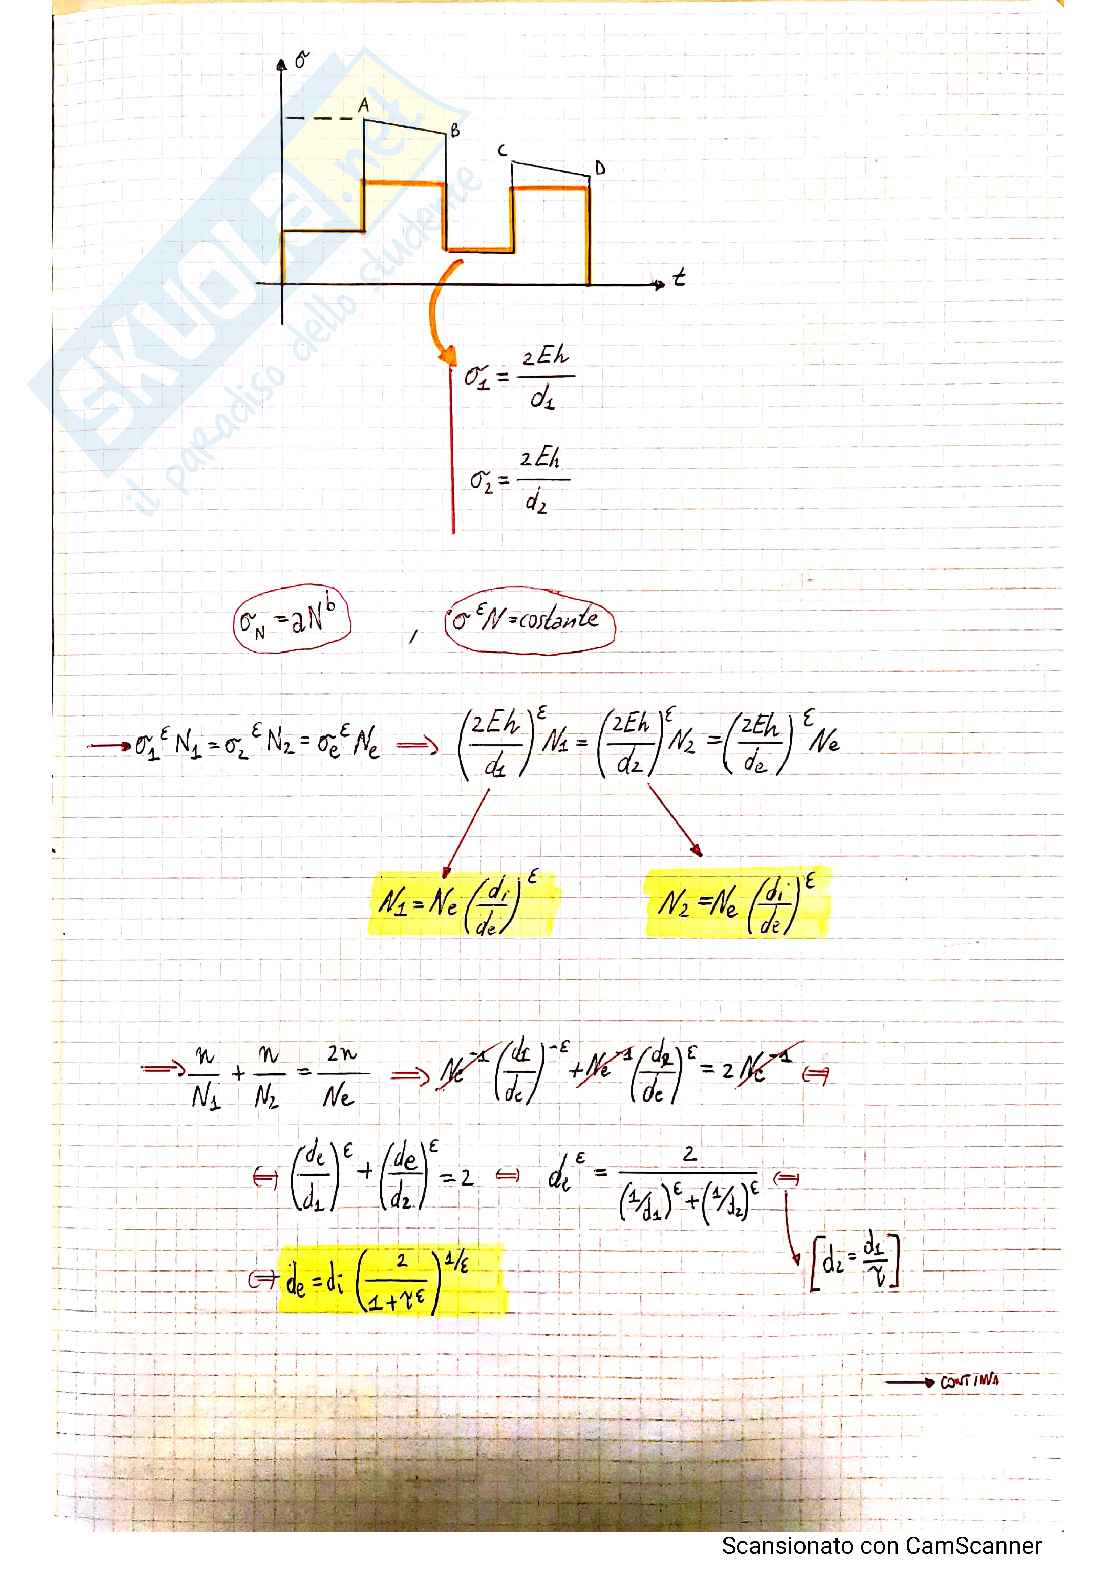 σ
A
B
C
D
t
SKUOLA.net
il paradiso dello studente
σ₁ = 2Eh/d₁
σ₂ = 2Eh/d₂
σ_N = aN^b , σ^ε N = costante
→ σ₁^ε N₁ = σ₂^ε N₂ = σe^ε Ne ⇒ (2Eh/d₁)^ε N₁ = (2Eh/d₂)^ε N₂ = (2Eh/de)^ε Ne
N₁ = Ne (di/de)^ε N₂ = Ne (di/de)^ε
⇒ n/N₁ + n/N₂ = 2n/Ne ⇒ Ne^-1 (d1/de)^-ε + Ne^-1 (d2/de)^ε = 2 Ne^-1 ⇔
⇔ (de/d₁)^ε + (de/d₂)^ε = 2 ⇔ de^ε = 2/((1/d₁)^ε + (1/d₂)^ε) ⇔
[d₂ = d₁/τ]
⇔ de = di (2/(1+τ^ε))^1/ε
→ CONTINUA
Scansionato con CamScanner